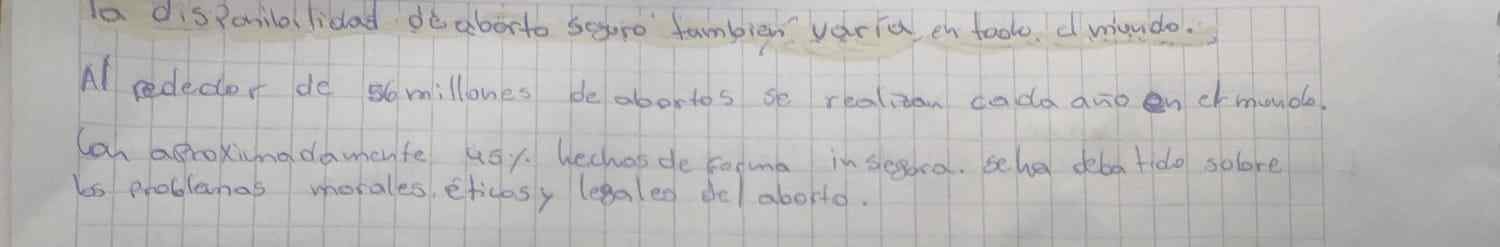 la disponibilidad de aborto seguro tambien varía en todo el mundo.
Al rededor de 56 millones de abortos se realizan cada año en el mundo.
Con aproximadamente 45% hechos de forma insegura. se ha debatido sobre
los problemas morales, éticos y legales del aborto.